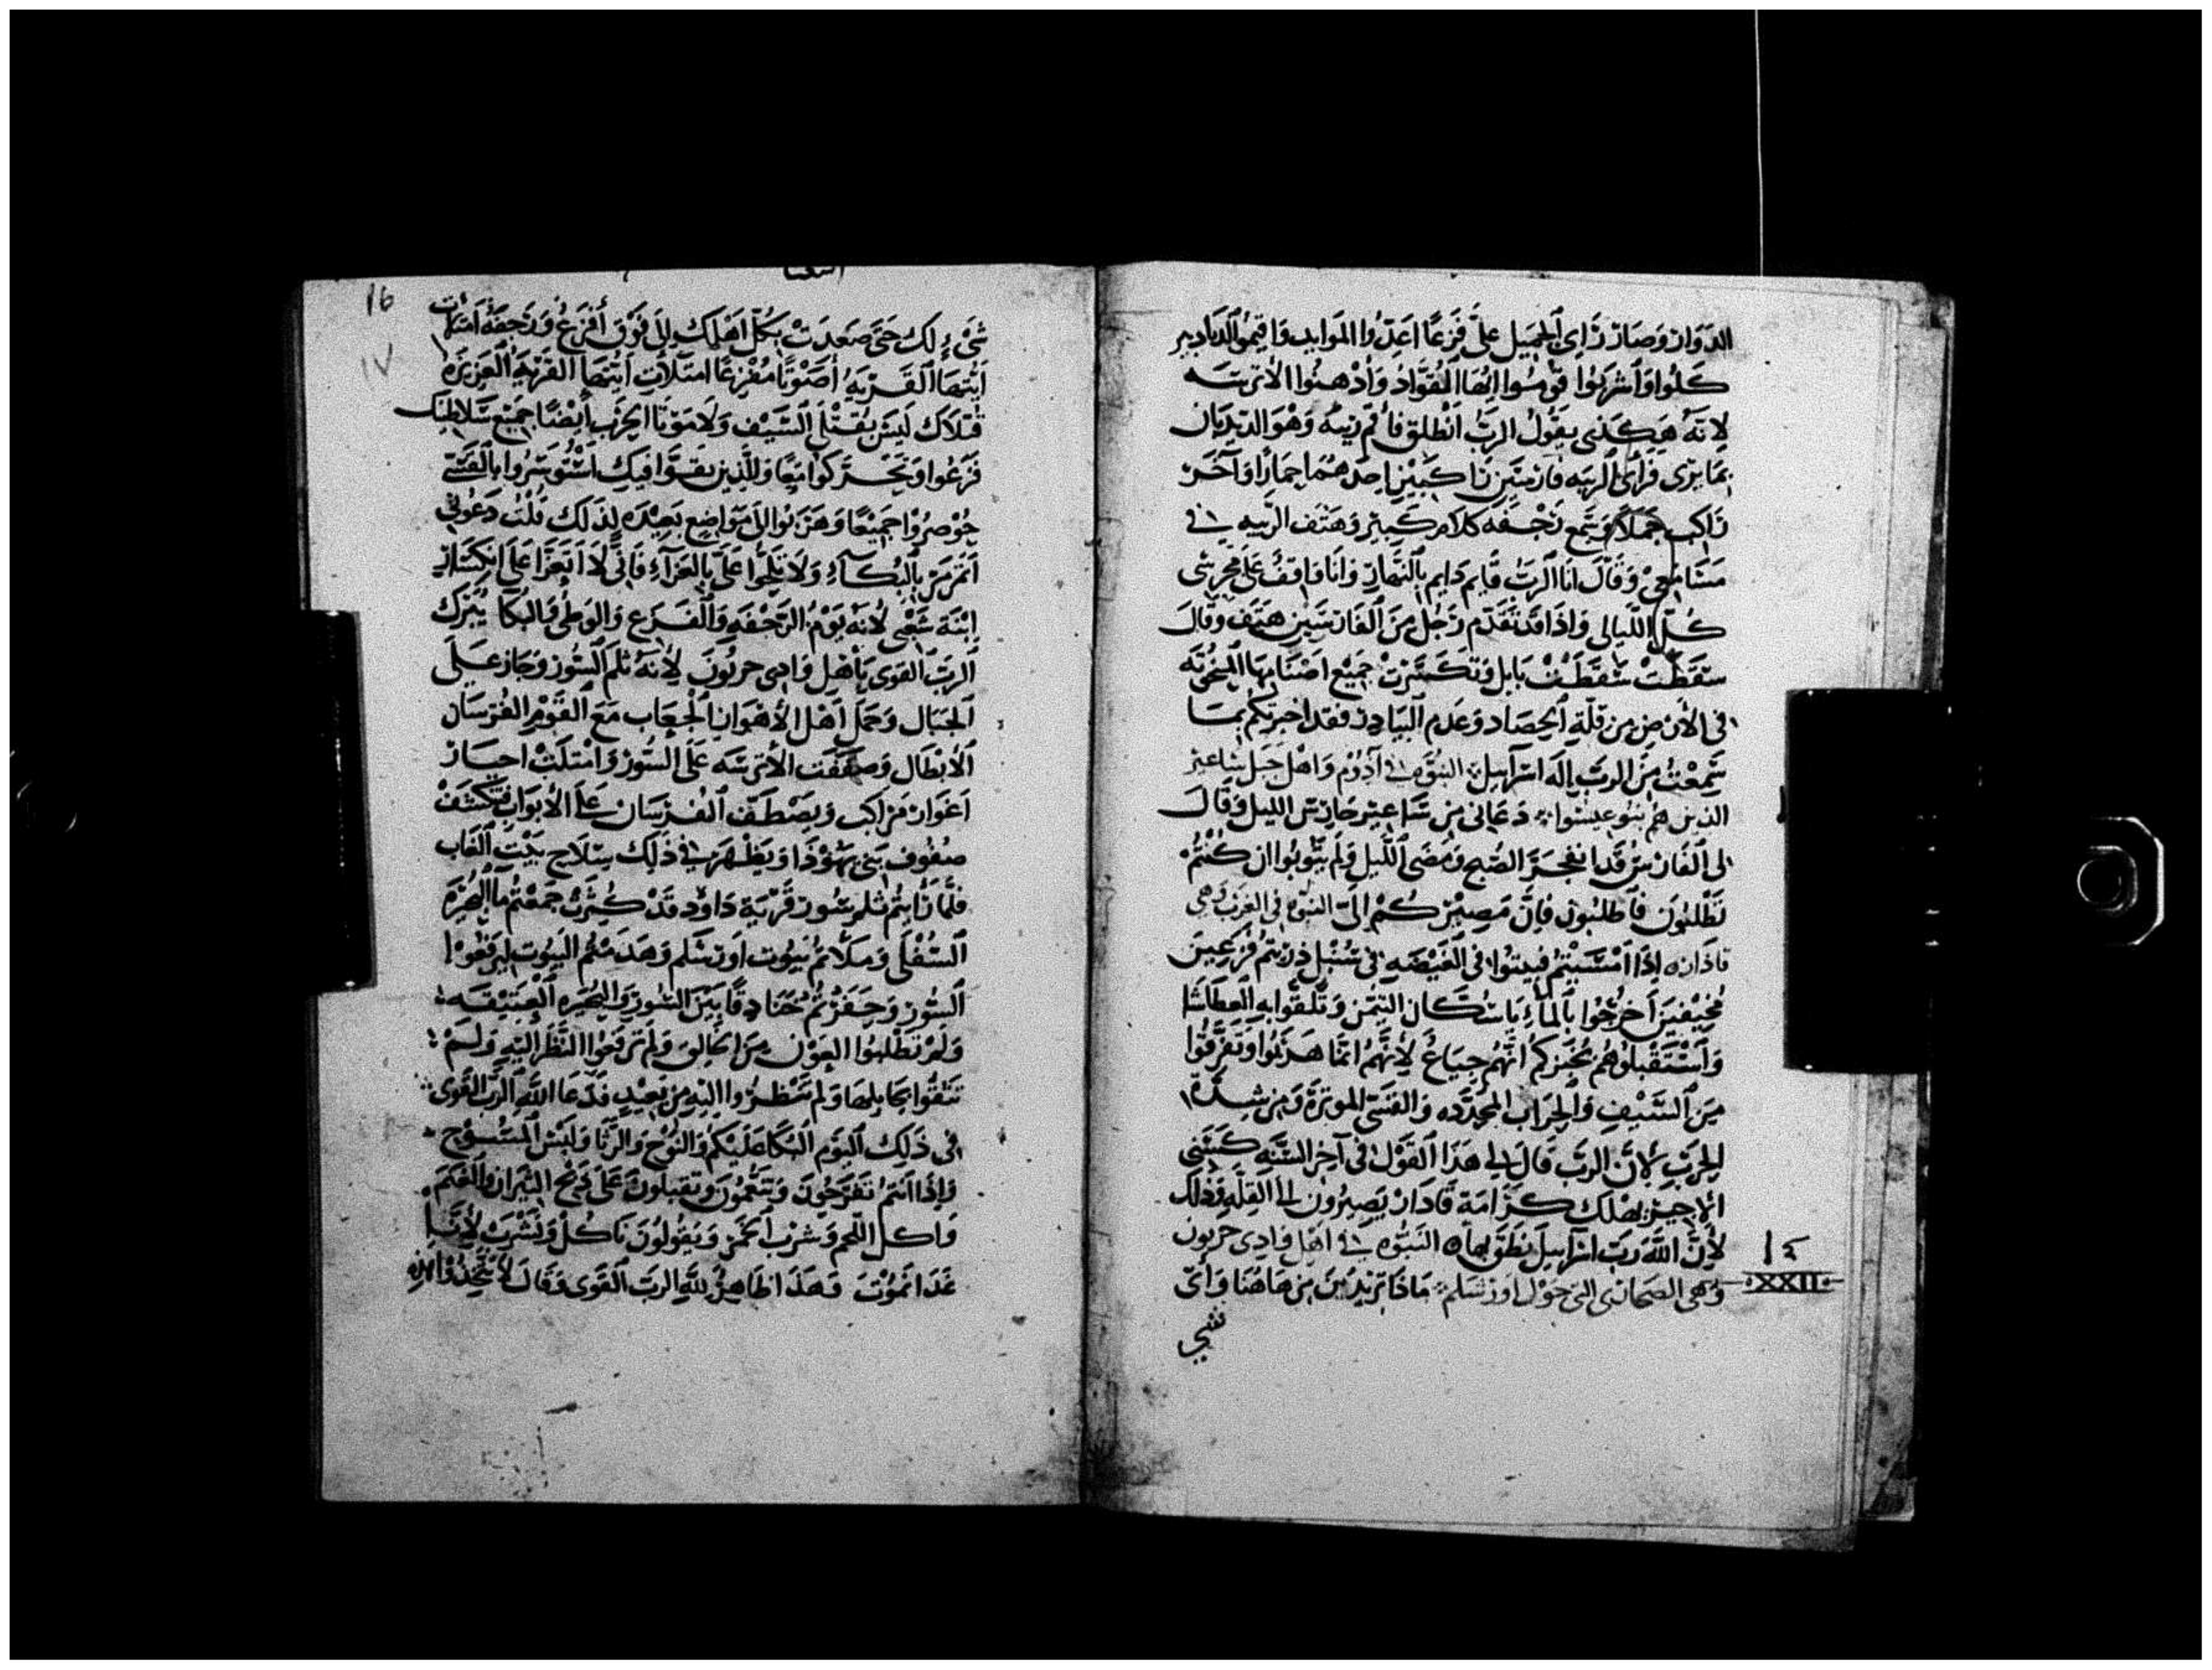 الدوار وصار راى الجميل على فزعا اعدوا الموايد واقيموا الديادبر
كلوا واشربوا قوموا ايها القواد وادهنوا الاترسه
لانه هكذى يقول الرب انطلق فاقم ربيه وهو الديدبان
بما يرى فراى الربيه فارسين راكبين احدهما حمارا وآخر
راكب جملا وسمع نجفه كلام كبير وهتف الربيه في
مسامعي وقال انا الرب قايم دايم بالنهار وانا واقف على محرسي
كل الليالي واذا قد تقدم رجل من الفارسين هتف وقال
سقطت سقطت بابل وتكسرت جميع اصنامها المنحوته
في الارض من قلة الحصاد وعدم البيادر فقد اخبرتكم بما
سمعت من الرب اله اسرآييل النبوه في آدوم واهل جبل شاعير
الذين هم بنو عيسوا دعاني من ساعير حارس الليل وقال
لي الفارس قد انفجر الصبح ومضى الليل ولم يتوبوا ان كنتم
تطلبون فاطلبون فان مصيركم الي النبوه في الغرب وهي
قاذار اذا امسيتم فبيتوا في الغيضه في سنبل ذريتم فزعين
مخيفين اخرجوا بالماء ياسكان التيمن وتلقوا به العطاشا
واستقبلوهم بخبزكم انهم جياع لانهم انما هربوا وتفرقوا
من السيف والحراب المحدده والقسي الموترة ومن شدة
الحرب لان الرب قال لي هذا القول في آخر السنه كسني
الاجير يهلك كرامة قادار يصيرون الى القله وذلك
لان الله رب اسرآييل نطق بهاه النبوه في اهل وادي حربون
وهي الصحاري التي حول اورشلم ماذا تريدين من هاهنا واي
١٤
XXII
شي
16
١٧
شيء لك حتى صعدت بكل اهلك الى فوق أفزع ورجفة امتلات
ايتها القريه أصوتا مفزعا امتلات ايتها القرية العزيزه
قتلاك ليس بقتلى السيف ولا موتا الحرب ايضا جميع سلاطينك
فزعوا وتحركوا معا وللذين يقووا فيك استوسروا بالقسي
حوصروا جميعا وهربوا الى مواضع بعيده لذلك قلت دعوني
اتمرمر بالبكآء ولا تلجوا علي بالعزآء فاني لا اتعزا على انكسار
ابنة شعبي لانه يوم الرجفه والفزع والوطي والبكا يبزك
الرب القوى ياهل وادي حربون لانه ثلم السور وجاز على
الجبال وحمل اهل الاهوار الجعاب مع القوم الفرسان
الابطال وصففت الاترسه على السور وامتلت احساز
اغوار مراكب ويصطف الفرسان على الابواب تتكشف
صفوف بني يهوذا ويظهر في ذلك سلاح بيت الغاب
فلما رايتم ثلم سور قرية داود قد كثرت جمعتم ما البحيره
السفلى وملاتم بيوت اورشلم وهدمتم البيوت ليرتفعوا
السور وحفرتم خنادقا بين السور والبحيره العتيقه
ولم تطلبوا العون من الخالق ولم ترفعوا النظر اليه ولم
تتقوا بجابلها ولم تنظروا اليه من بعيد فدعا الله الرب القوى
في ذلك اليوم البكا عليكم والنوح والرثا ولبس المسوح
واذا انتم تفرحون وتتنعمون وتقبلون على ذبح الثيران والغنم
واكل اللحم وشرب الخمر وتقولون ناكل ونشرب لاننا
غدا نموت وهذا ظاهر لله الرب القوى وقال لا تتخذوا هذه